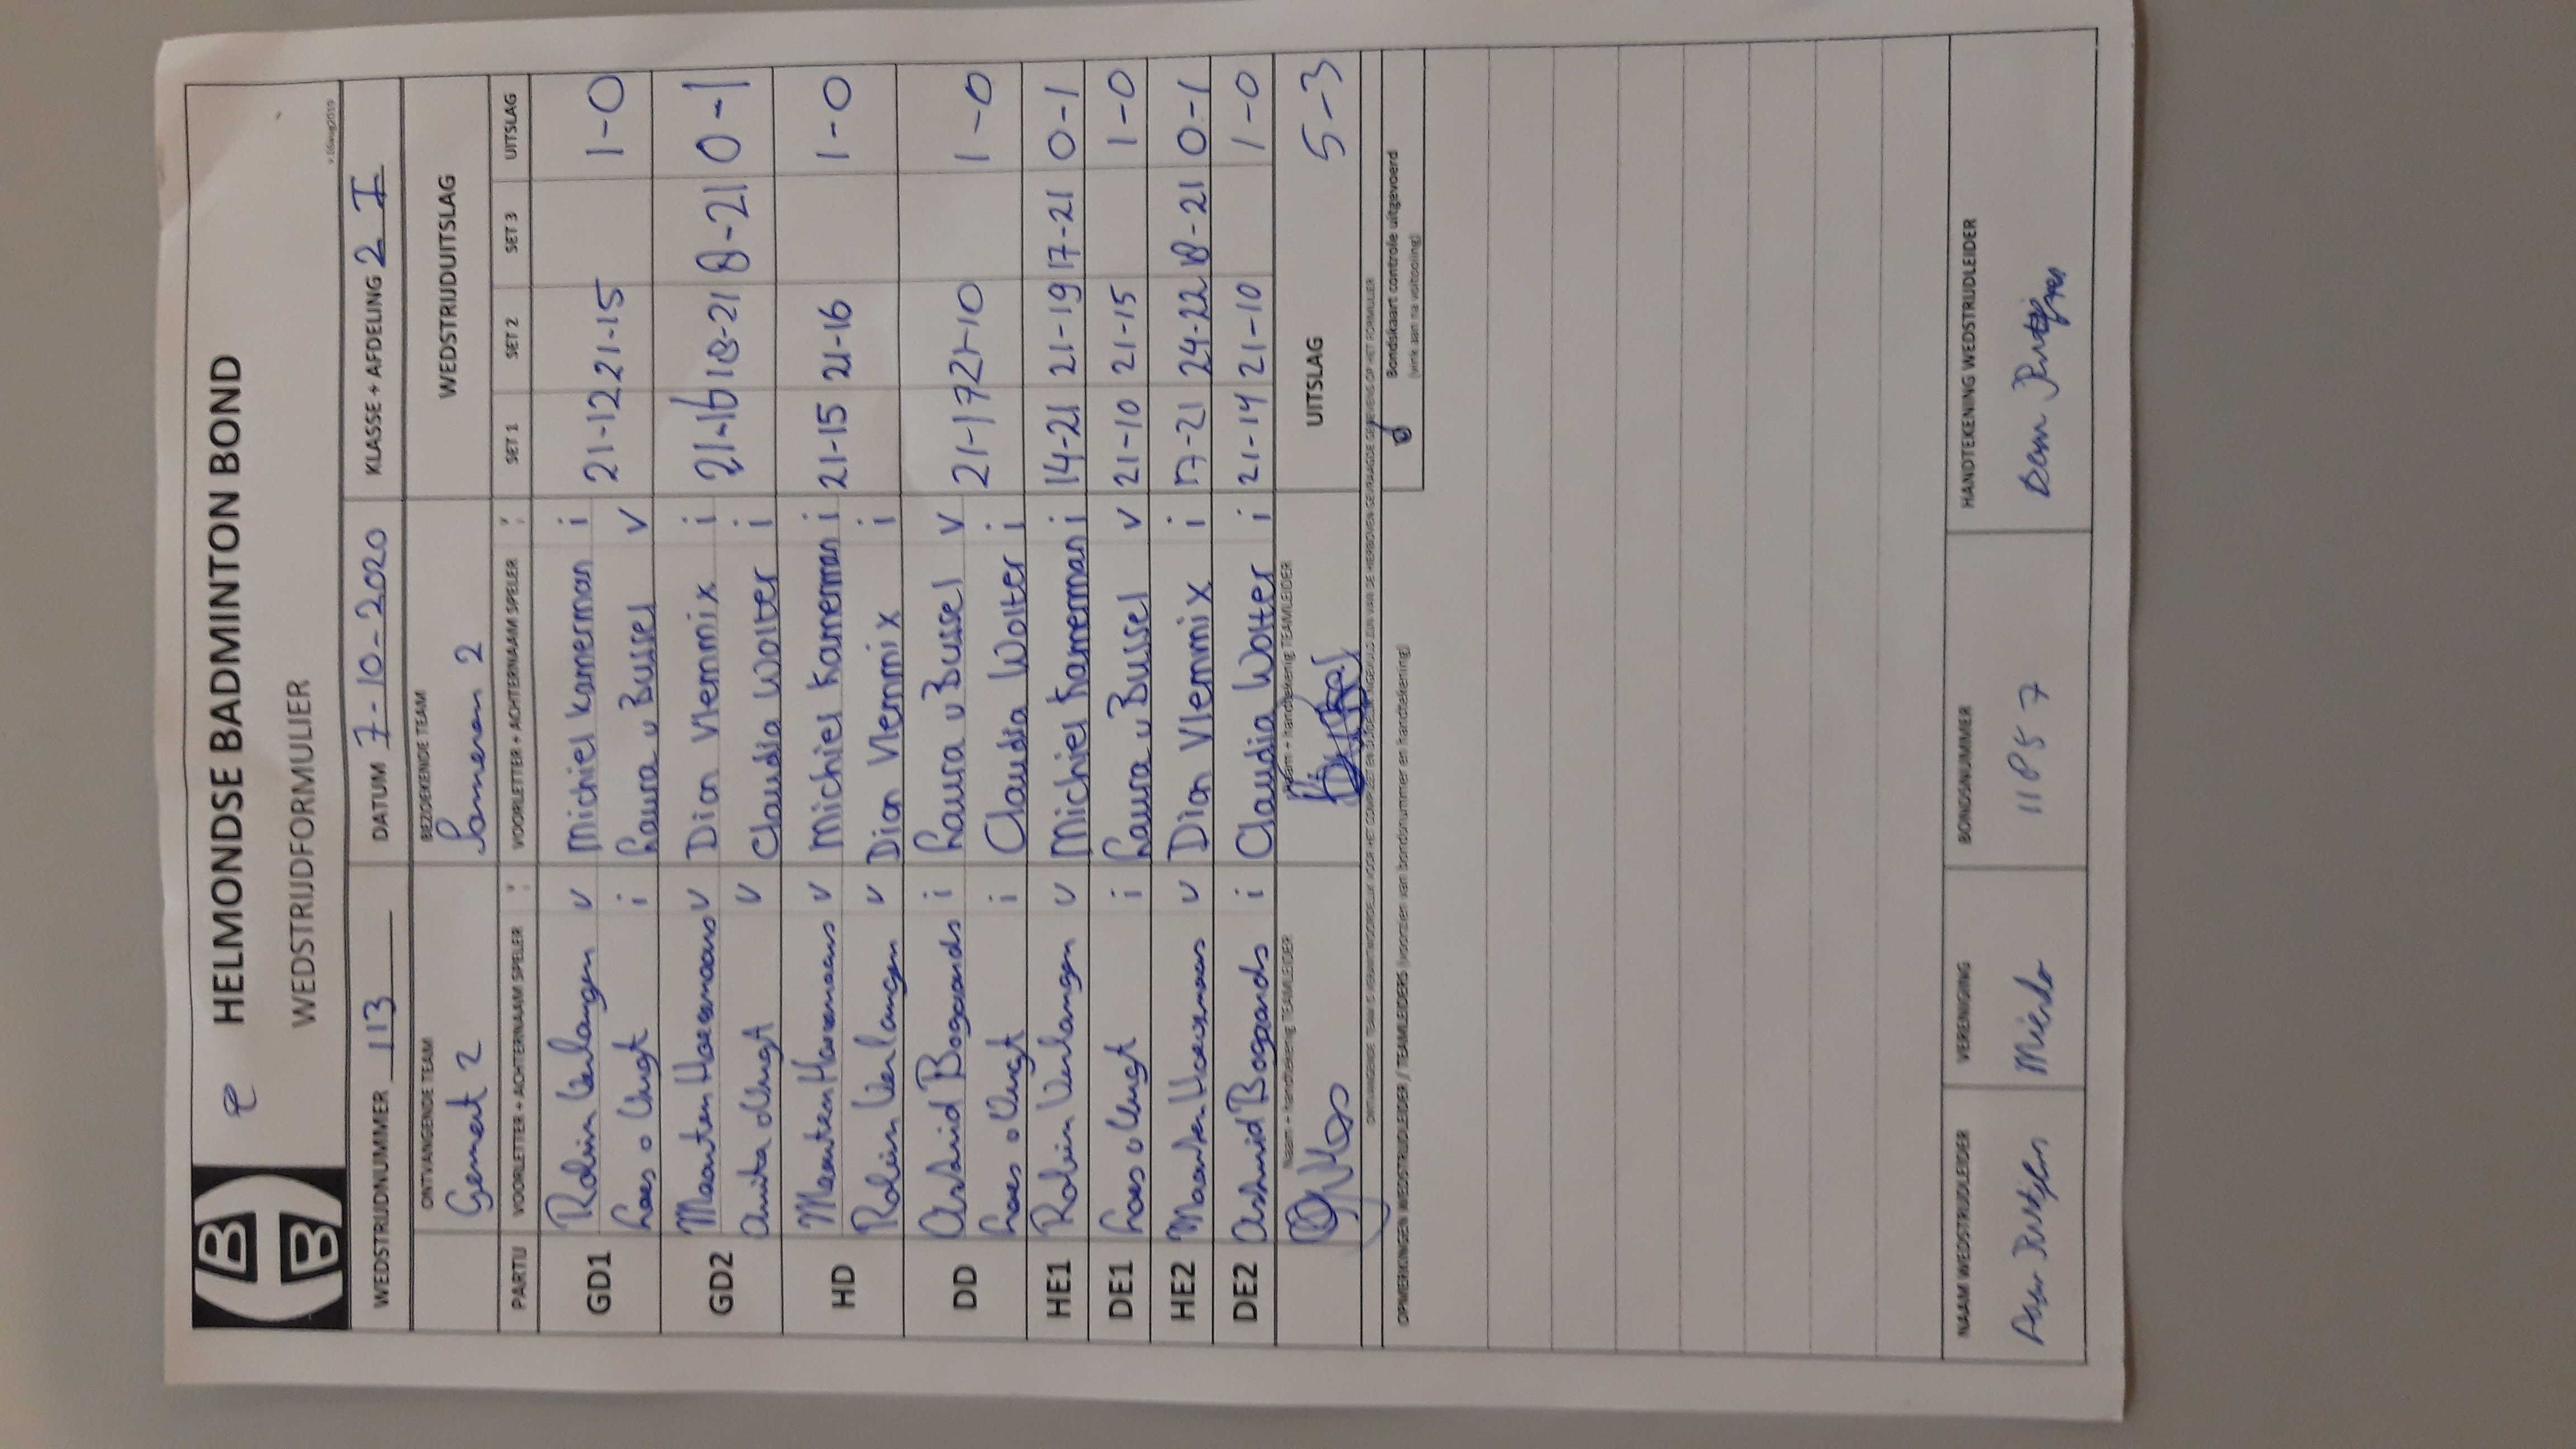 HELMONDSE BADMINTON BOND
WEDSTRIJDFORMULIER
v.06aug2019
WEDSTRIJDNUMMER 113 DATUM 7-10-2020 KLASSE + AFDELING 2 I
ONTVANGENDE TEAM BEZOEKENDE TEAM WEDSTRIJDUITSLAG
Gemert 2 Someren 2
PARTIJ VOORLETTER + ACHTERNAAM SPELER VOORLETTER + ACHTERNAAM SPELER SET 1 SET 2 SET 3 UITSLAG
GD1 Robin Verlangen v Michiel Kamerman i 21-12 21-15 1-0
Loes v Vugt i Laura v Bussel v
GD2 Maarten v Dion Vlemmix i 21-16 18-21 8-21 0-1
Anita v Vugt v Claudia Wolter i
HD Maarten v Michiel Kameman i 21-15 21-16 1-0
Robin Verlangen v Dion Vlemmix i
DD Astrid Bogaards i Laura v Bussel v 21-17 21-10 1-0
Loes v Vugt i Claudia Wolter i
HE1 Robin Verlangen v Michiel Kameman i 14-21 21-19 17-21 0-1
DE1 Loes v Vugt i Laura v Bussel v 21-10 21-15 1-0
HE2 Maarten v Dion Vlemmix i 17-21 24-22 18-21 0-1
DE2 Astrid Bogaards i Claudia Wolter i 21-14 21-10 1-0
Naam + handtekenig TEAMLEIDER Naam + handtekenig TEAMLEIDER UITSLAG 5-3
ONTVANGENDE TEAM IS VERANTWOORDELIJK VOOR HET COMPLEET EN DUIDELIJK INGEVULD ZIJN VAN DE HIERBOVEN GEVRAAGDE GEGEVENS OP HET FORMULIER
OPMERKINGEN WEDSTRIJDLEIDER / TEAMLEIDERS (voorzien van bondsnummer en handtekening) Bondskaart controle uitgevoerd
(vink aan na voltooiing)
NAAM WEDSTRIJDLEIDER VERENIGING BONDSNUMMER HANDTEKENING WEDSTRIJDLEIDER
Rutjes Mierlo